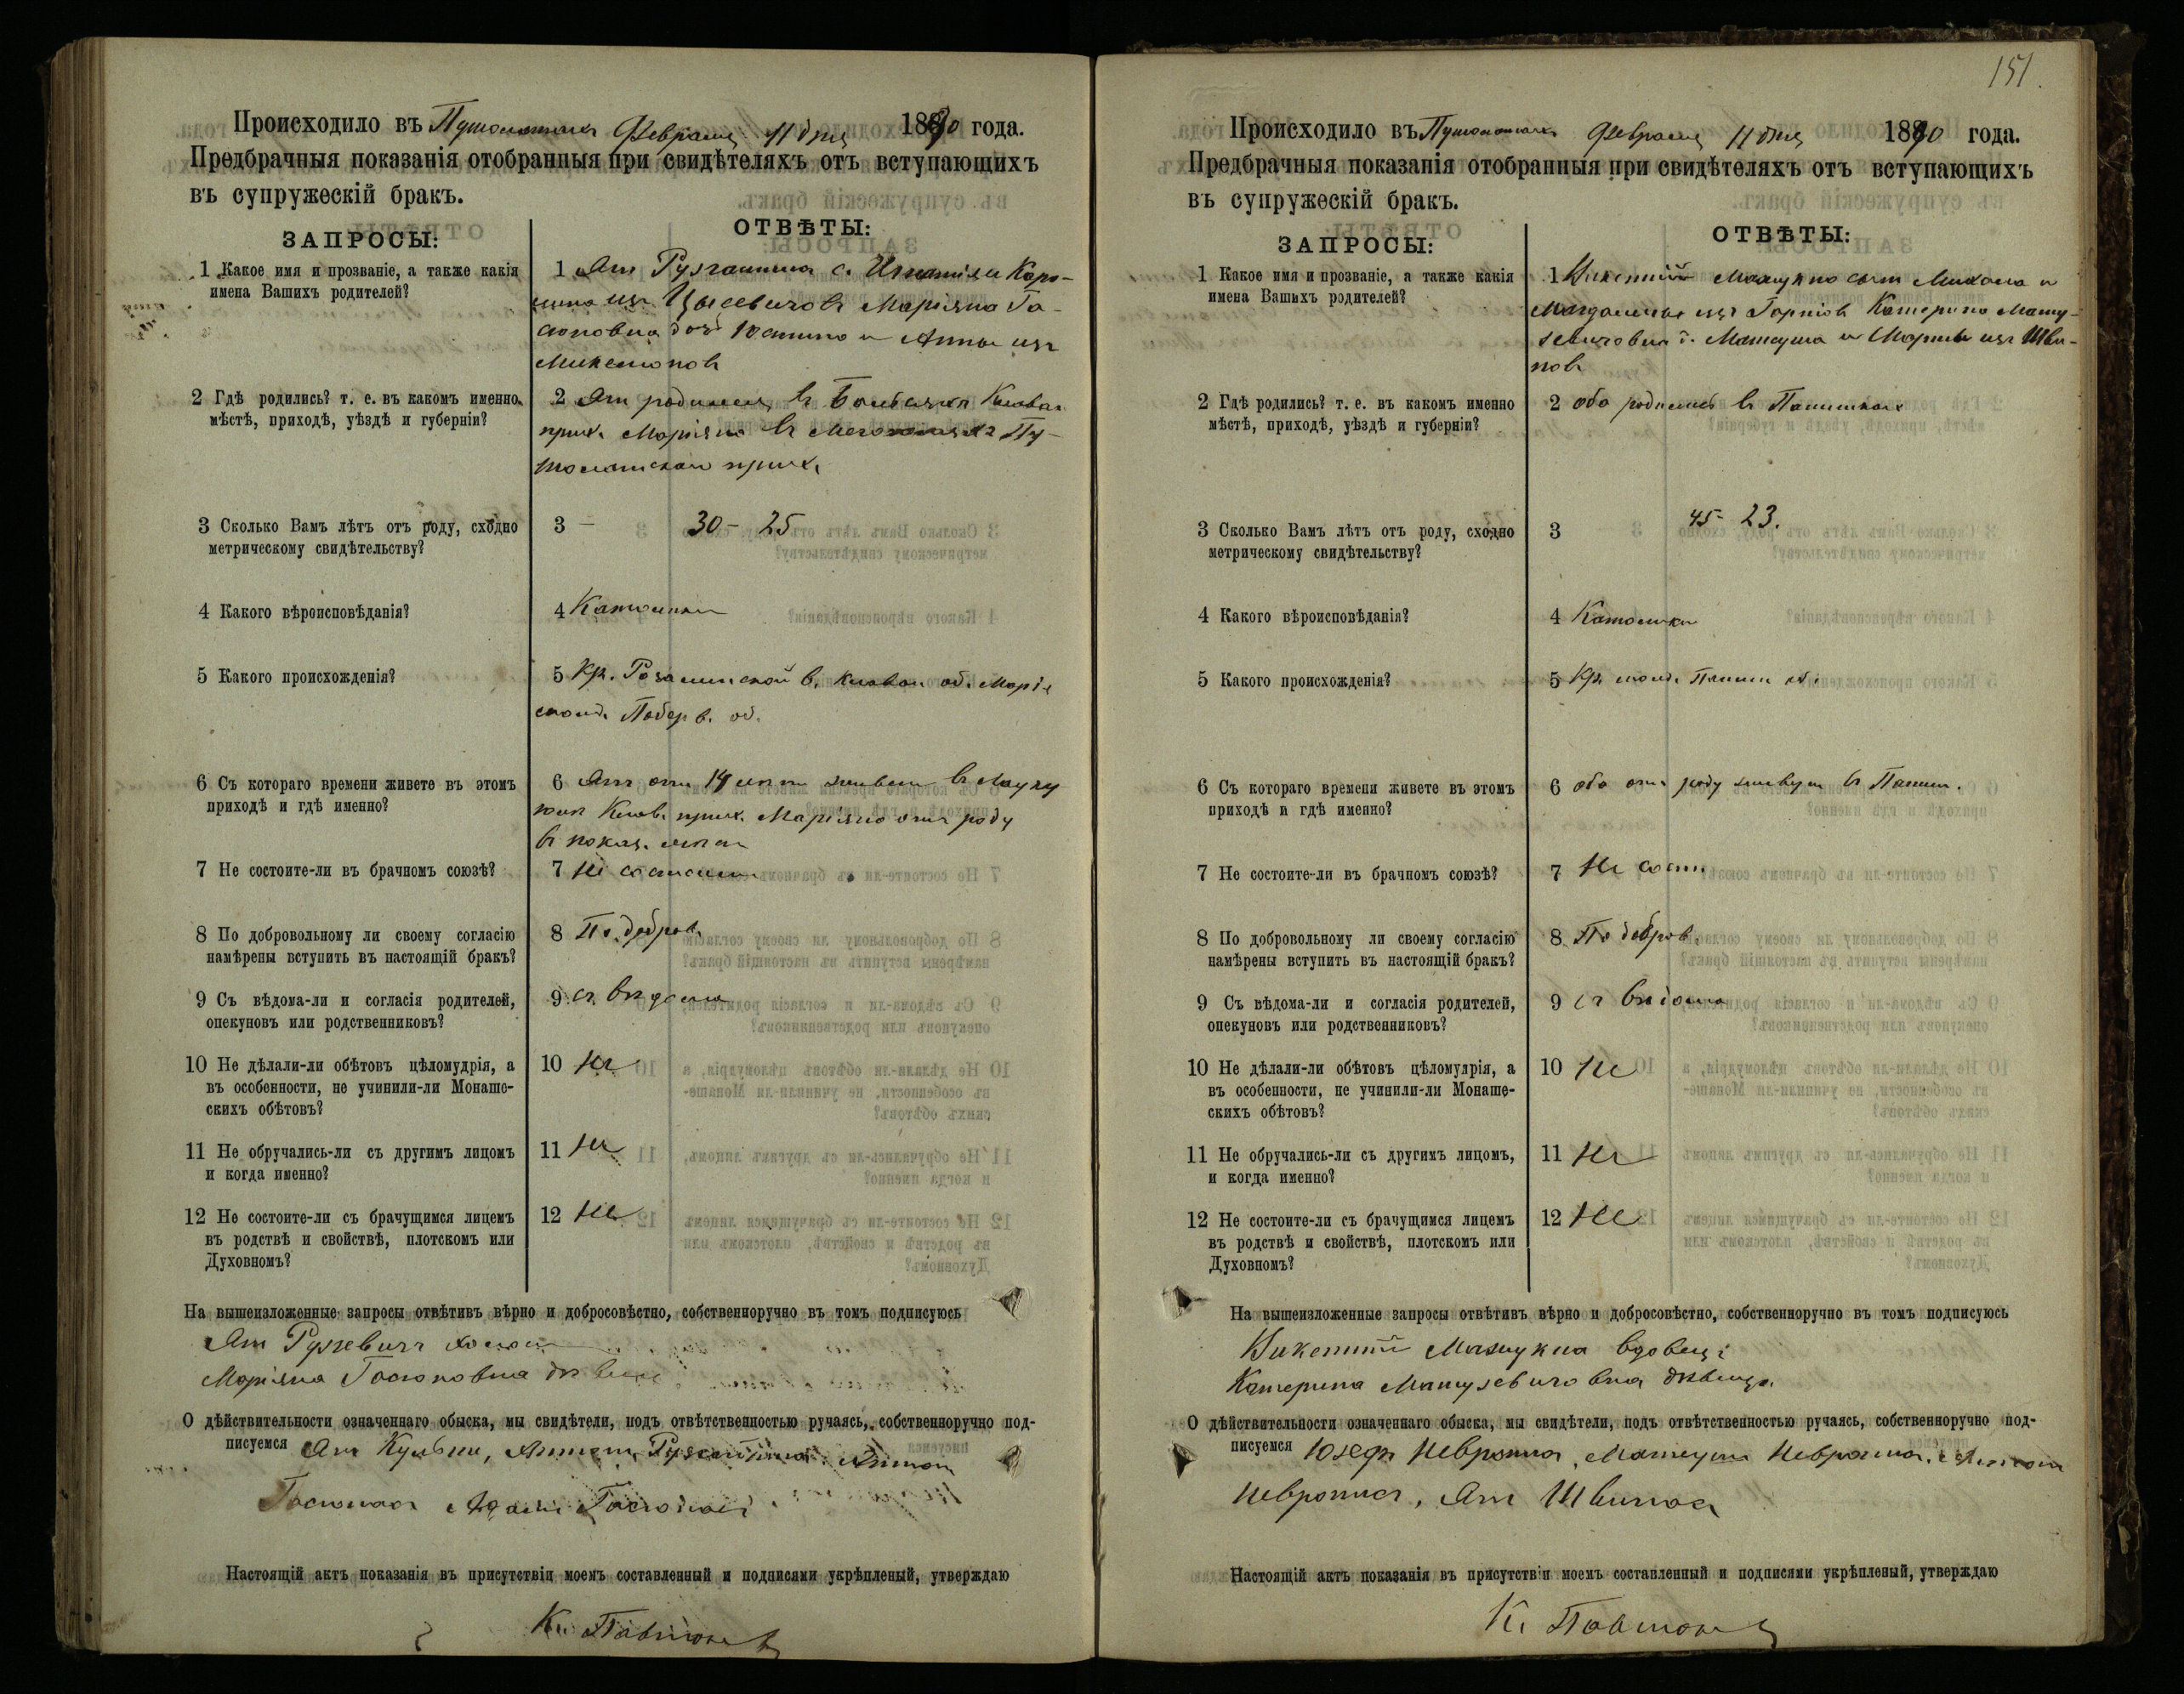 Происходило въ Пушолатахъ Февраля 11 дня 1890 года.
Предбрачныя показанія отобранныя при свидѣтеляхъ отъ вступающихъ
въ супружескій бракъ.
ЗАПРОСЫ:
ОТВѢТЫ:
1 Какое имя и прозваніе, а также какія
имена Вашихъ родителей?
1 Ян с. Игнатія и Каро-
лины изъ Маріяна Га-
дочь Юстина и Анны изъ
2 Гдѣ родились? т. е. въ какомъ именно
мѣстѣ, приходѣ, уѣздѣ и губерніи?
2 Ян родился в
прих. Маріяна в Пу-
шолатском прих.
3 Сколько Вамъ лѣтъ отъ роду, сходно
метрическому свидѣтельству?
3 — 30 - 25
4 Какого вѣроисповѣданія?
4 Католики
5 Какого происхожденія?
5 Кр. Розалинской в. об. Марія
Побер в. об.
6 Съ котораго времени живете въ этомъ
приходѣ и гдѣ именно?
6 Ян от 14 лѣт живет в
прих. Маріяна от роду
в показ. мѣстѣ
7 Не состоите-ли въ брачномъ союзѣ?
7 Не состоим
8 По добровольному ли своему согласію
намѣрены вступить въ настоящій бракъ?
8 По добров.
9 Съ вѣдома-ли и согласія родителей,
опекуновъ или родственниковъ?
9 съ вѣдома
10 Не дѣлали-ли обѣтовъ цѣломудрія, а
въ особенности, не учинили-ли Монаше-
скихъ обѣтовъ?
10 Не
11 Не обручались-ли съ другимъ лицомъ
и когда именно?
11 Не
12 Не состоите-ли съ брачущимся лицемъ
въ родствѣ и свойствѣ, плотскомъ или
Духовномъ?
12 Не
На вышеизложенные запросы отвѣтивъ вѣрно и добросовѣстно, собственноручно въ томъ подписуюсь
Ян Рузгевичъ холост
Маріяна Гасюновна дѣвица
О дѣйствительности означеннаго обыска, мы свидѣтели, подъ отвѣтственностью ручаясь, собственноручно под-
писуемся Ян Антон
Адам
Настоящій актъ показанія въ присутствіи моемъ составленный и подписями укрѣпленый, утверждаю
К.
151.
Происходило въ Пушолатахъ Февраля 11 дня 1890 года.
Предбрачныя показанія отобранныя при свидѣтеляхъ отъ вступающихъ
въ супружескій бракъ.
ЗАПРОСЫ:
ОТВѢТЫ:
1 Какое имя и прозваніе, а также какія
имена Вашихъ родителей?
1 Викентій Мажукна сын Михала и
Магдалены изъ Катерина Мату-
зевичовна д. Матеуша и Марты изъ Шви-
нов
2 Гдѣ родились? т. е. въ какомъ именно
мѣстѣ, приходѣ, уѣздѣ и губерніи?
2 оба родились в
3 Сколько Вамъ лѣтъ отъ роду, сходно
метрическому свидѣтельству?
3 45 - 23.
4 Какого вѣроисповѣданія?
4 Католики
5 Какого происхожденія?
5 Кр. об.
6 Съ котораго времени живете въ этомъ
приходѣ и гдѣ именно?
6 оба от роду живут в
7 Не состоите-ли въ брачномъ союзѣ?
7 Не сост.
8 По добровольному ли своему согласію
намѣрены вступить въ настоящій бракъ?
8 По добров.
9 Съ вѣдома-ли и согласія родителей,
опекуновъ или родственниковъ?
9 съ вѣдома
10 Не дѣлали-ли обѣтовъ цѣломудрія, а
въ особенности, не учинили-ли Монаше-
скихъ обѣтовъ?
10 Не
11 Не обручались-ли съ другимъ лицомъ,
и когда именно?
11 Не
12 Не состоите-ли съ брачущимся лицемъ
въ родствѣ и свойствѣ, плотскомъ или
Духовномъ?
12 Не
На вышеизложенные запросы отвѣтивъ вѣрно и добросовѣстно, собственноручно въ томъ подписуюсь
Викентій Мажукна вдовец
Катерина Матузевичовна дѣвица
О дѣйствительности означеннаго обыска, мы свидѣтели, подъ отвѣтственностью ручаясь, собственноручно под-
писуемся Юзефъ Матеуш Антон
Ян
Настоящій актъ показанія въ присутствіи моемъ составленный и подписями укрѣпленый, утверждаю
К.